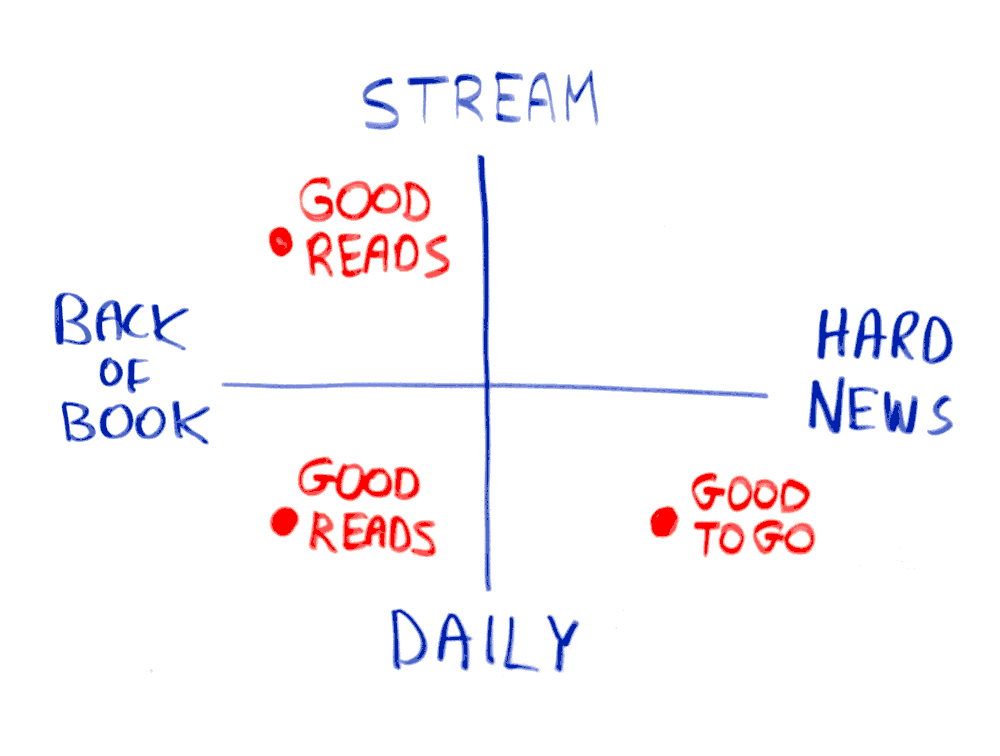 STREAM
GOOD
READS
BACK
OF
BOOK
HARD
NEWS
GOOD
READS
GOOD
TO GO
DAILY